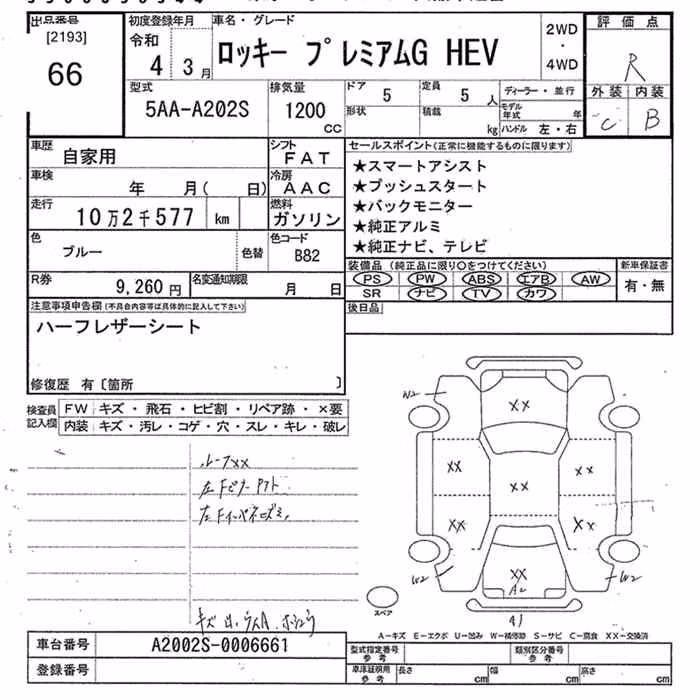 出品番号
[2193]
66
初度登録年月
令和
4年3月
車名・グレード
ロッキー プレミアムG HEV
2WD
・
4WD
評価点
R
外装 内装
C B
型式
5AA-A202S
排気量
1200
CC
ドア
5
定員
5人
形状
積載
kg
ディーラー・並行
モデル年式 年
ハンドル 左・右
車歴
自家用
シフト
FAT
車検
年 月( 日)
冷房
AAC
走行
10万2千577 km
燃料
ガソリン
色
ブルー
色替
色コード
B82
R券
9,260円
名変通知期限
月 日
セールスポイント(正常に機能するものに限ります)
★スマートアシスト
★プッシュスタート
★バックモニター
★純正アルミ
★純正ナビ、テレビ
装備品 (純正品に限り○をつけてください)
PS PW ABS エアB AW
SR ナビ TV カワ
新車保証書
有・無
後日品
注意事項申告欄(不具合内容等は具体的に記入して下さい)
ハーフレザーシート
修復歴 有〔箇所 〕
検査員
記入欄
FW キズ・飛石・ヒビ割・リペア跡・×要
内装 キズ・汚レ・コゲ・穴・スレ・キレ・破レ
ルーフXX
左Fピラー
左Fインパネ
W2
XX
XX XX XX
XX XX
XX
A2
W2 W2
A1
スペア
A-キズ E-エクボ U-凹み W-補修跡 S-サビ C-腐食 XX-交換済
車台番号
A202S-0006661
登録番号
型式指定番号
参考
類別区分番号
参考
車庫証明用
参考
長さ cm
幅 cm
高さ cm